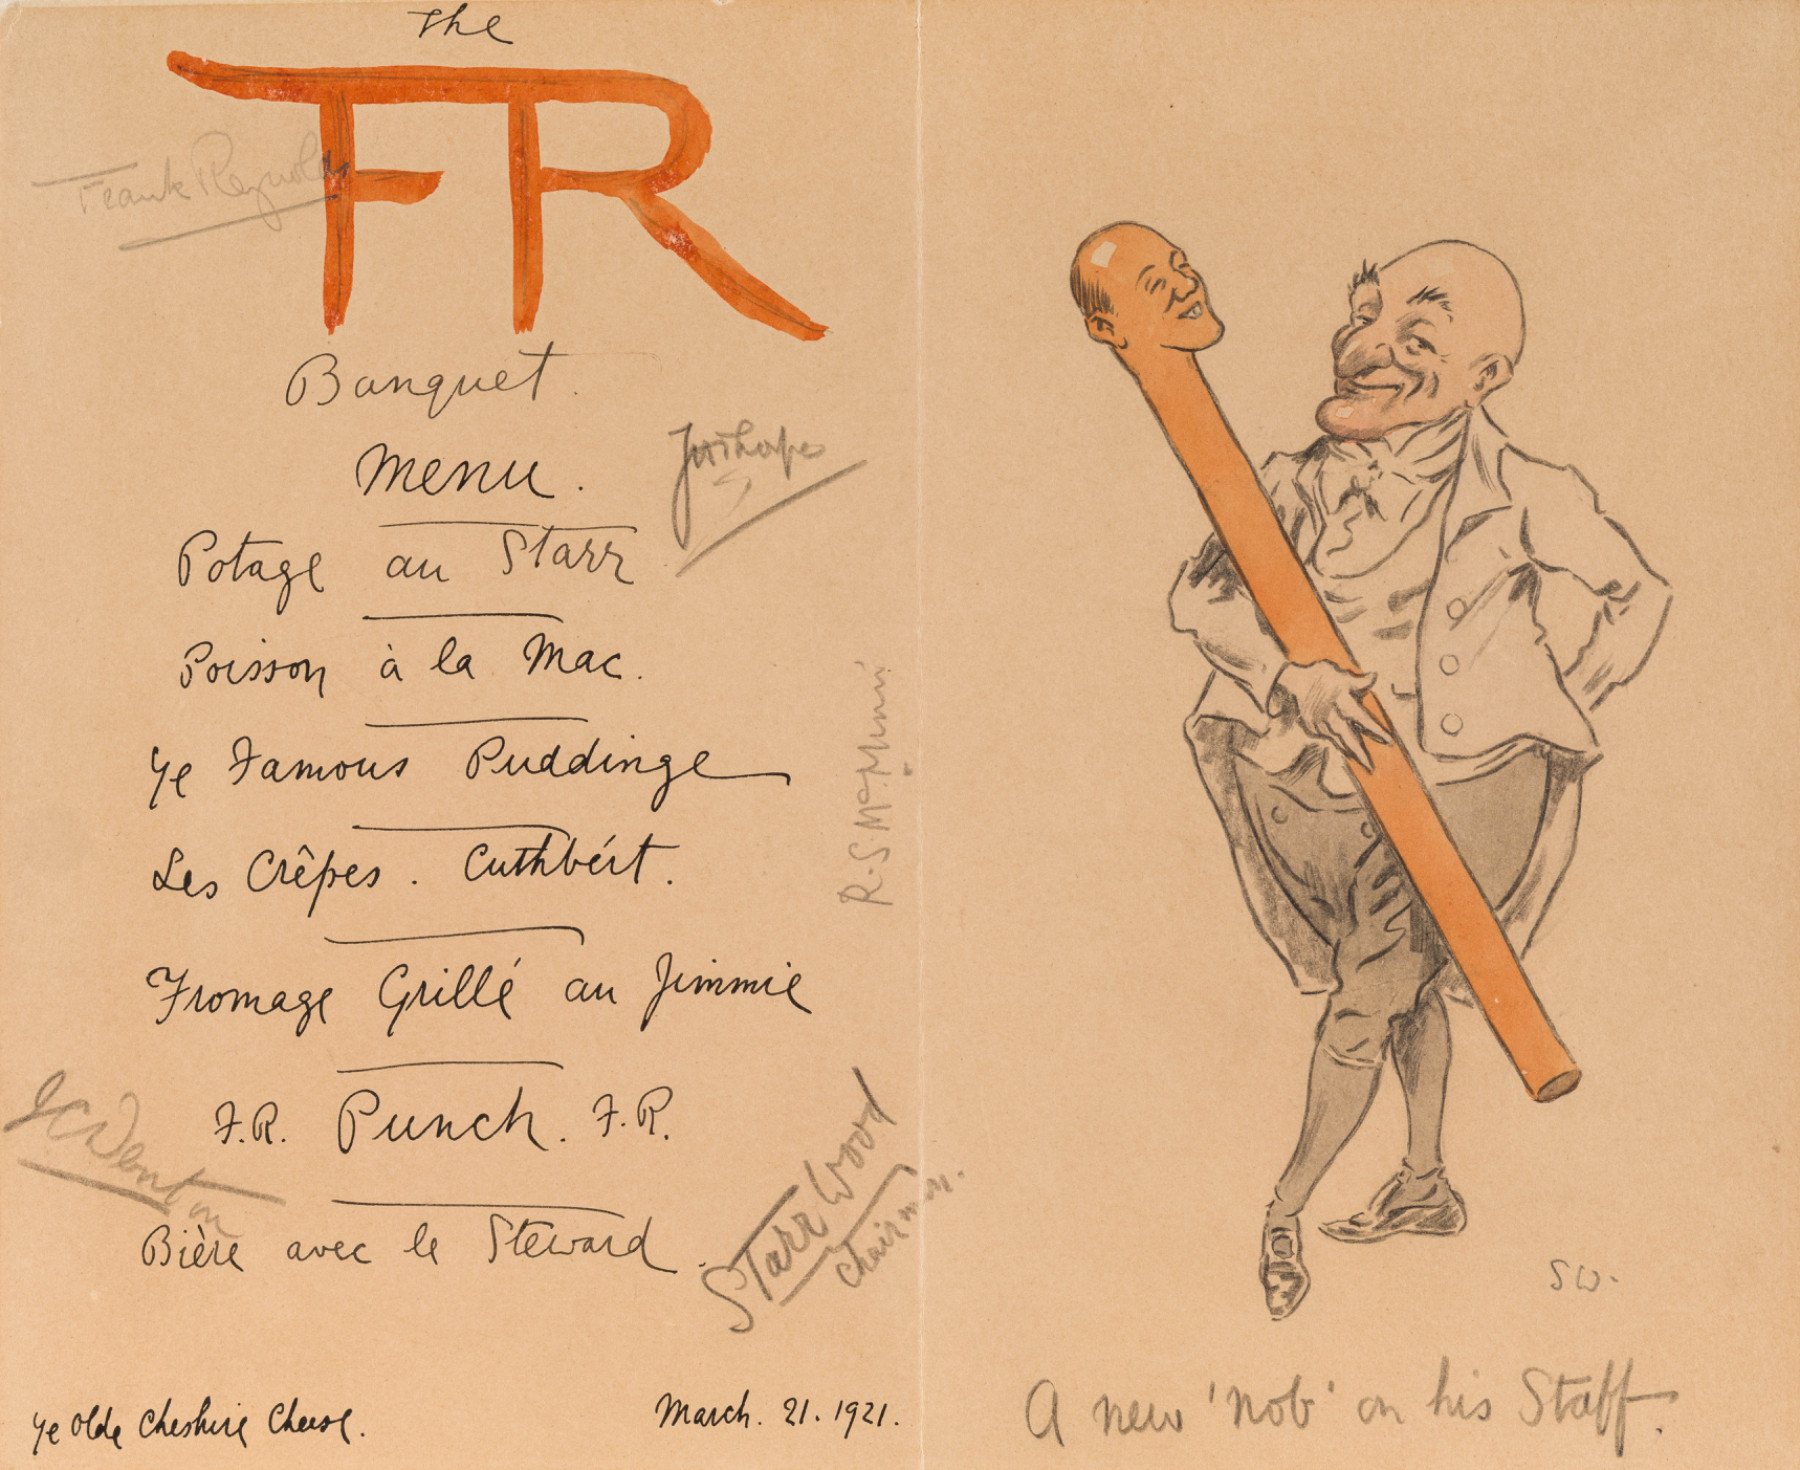 The
FR
Frank Reynolds
Banquet.
Menu.
Potage au Starr
Poisson à la Mac.
Ye Famous Puddinge
R. S Mc. Minn.
Les Crêpes. Cuthbért.
Fromage Grillé au Jimmie
F.R. Punch. F.R.
Bière avec le Steward.
Starr Wood
Chairman.
Ye Olde Cheshire Cheese.
March. 21. 1921.
SW.
A new 'nob' on his Staff.